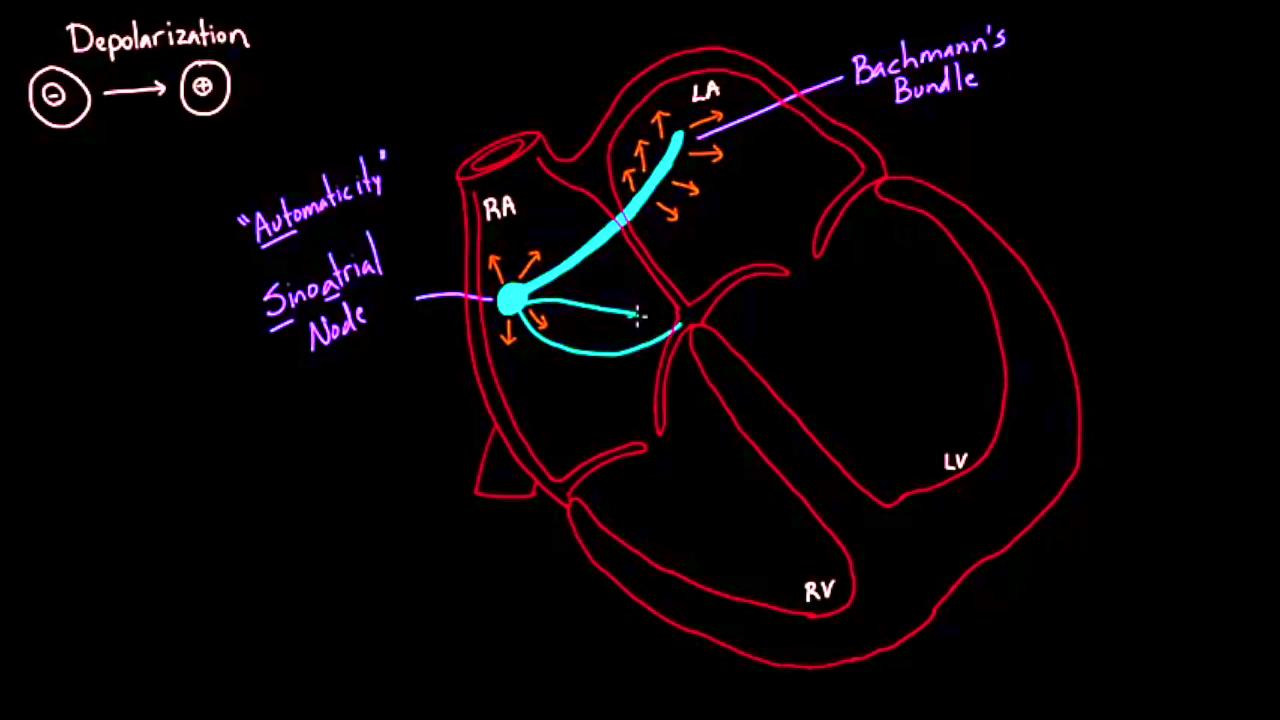 Depolarization
⊖ → ⊕
"Automaticity"
Sinoatrial
Node
RA
LA
Bachmann's
Bundle
LV
RV